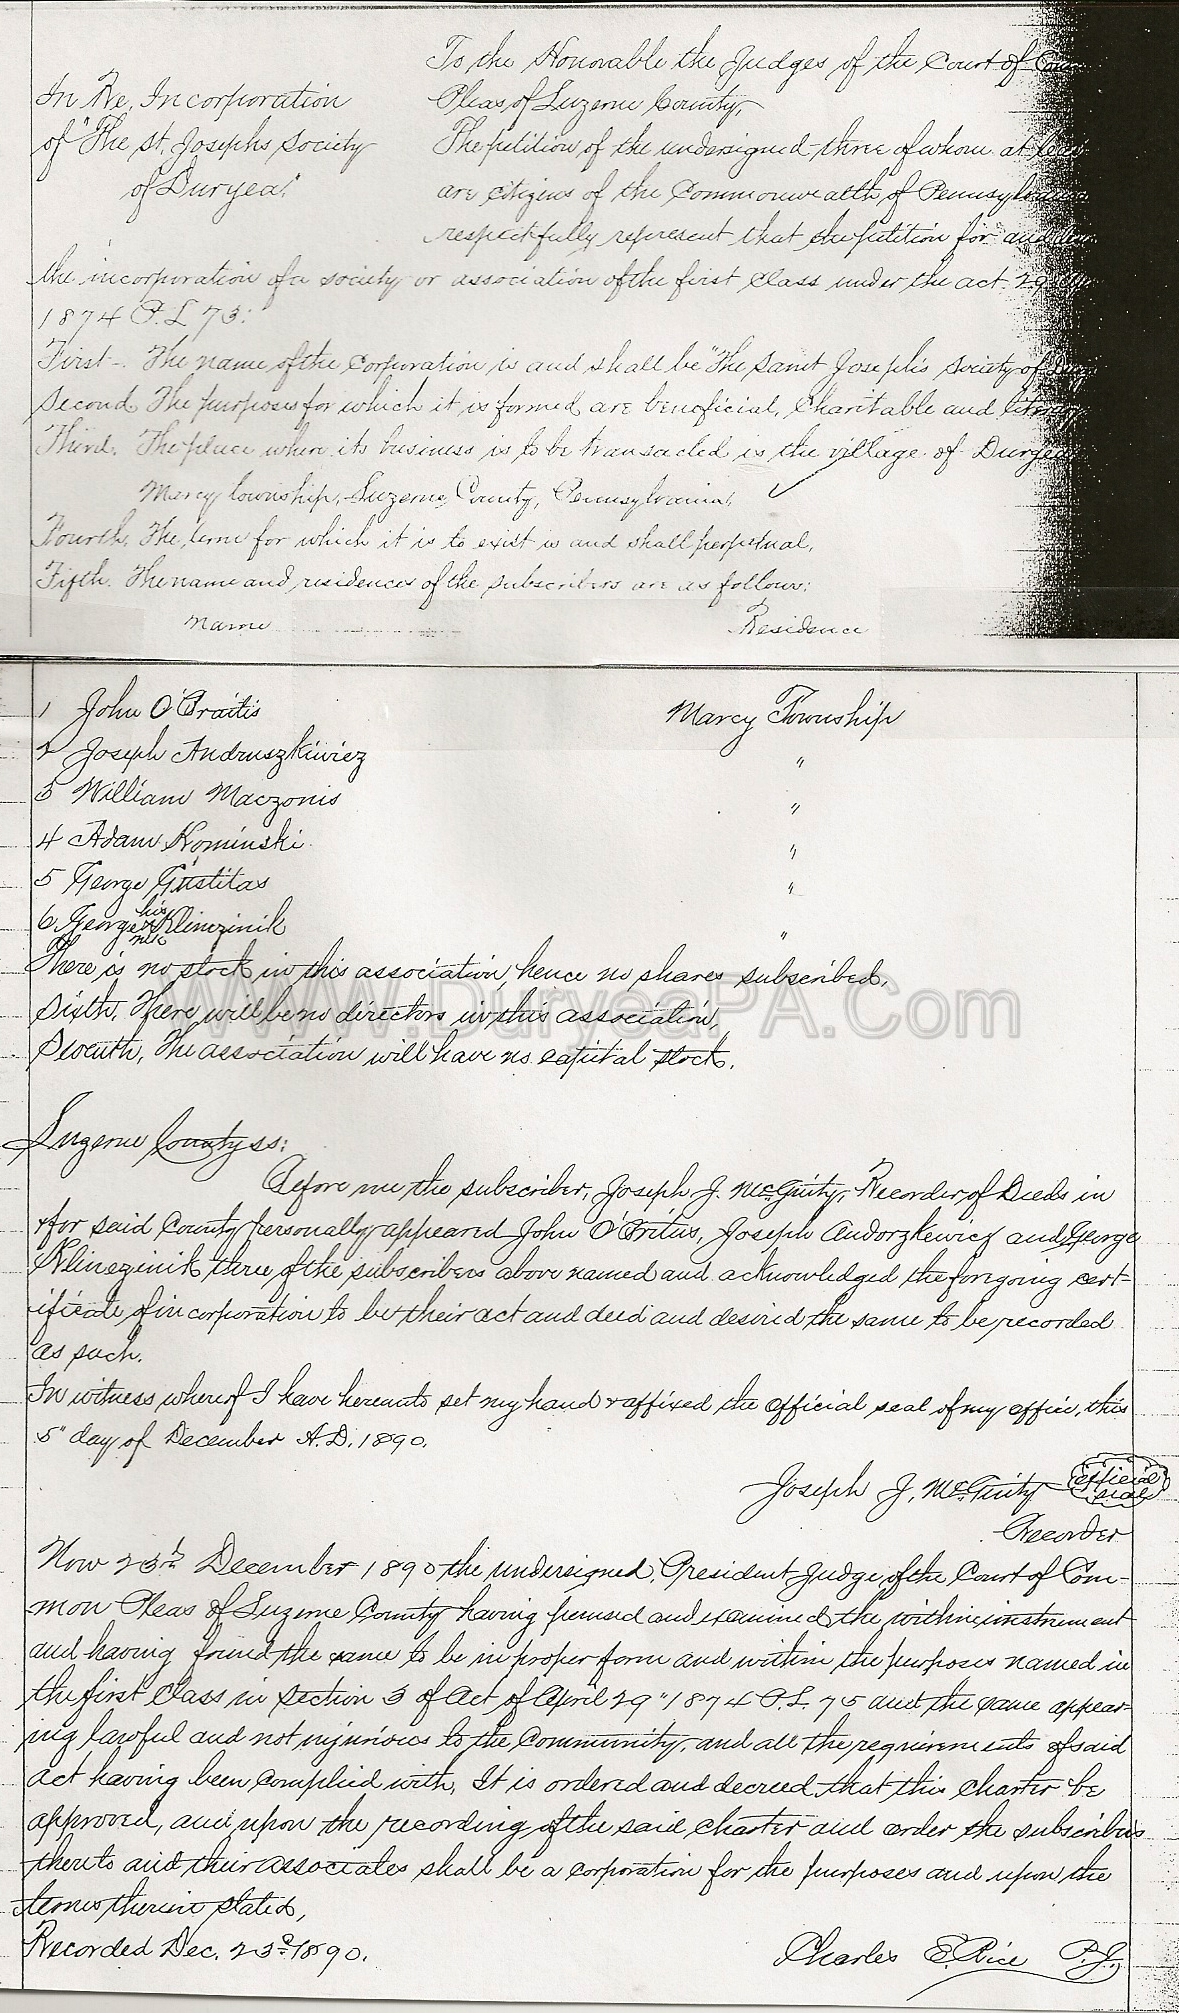 To the Honorable the Judges of the Court of
In Re, Incorporation
Pleas of Luzerne County,
of "The St. Josephs Society
The petition of the undersigned three of whom at
of Duryea"
are citizens of the Commonwealth of Pennsylvania
respectfully represent that the petition for and
the incorporation of a society or association of the first class under the act 29
1874 P.L 73:
First - The name of the Corporation is and shall be "The Saint Joseph's Society of
Second The purposes for which it is formed are beneficial, Charitable and
Third. The place where its business is to be transacted is the village of Duryea
Marcy township, Luzerne County, Pennsylvania,
Fourth. The term for which it is to exist is and shall perpetual,
Fifth. The name and residences of the subscribers are as follows:
Name Residence
1 John O'Braitis Marcy Township
2 Joseph Andruszkiwicz "
3 William Maczonis "
4 Adam Kominski "
5 George Gustitas "
6 George his x mk Klinezinik "
There is no stock in this association, hence no shares subscribed,
Sixth. There will be no directors in this association,
WWW.DuryeaPA.Com
Seventh, The association will have no capital stock.
Luzerne County ss:
Before me the subscriber, Joseph J. McGinty, Recorder of Deeds in
& for said County personally appeared John O'Britus, Joseph Andorzkewicz and George
Klinezinik three of the subscribers above named and acknowledged the foregoing cert-
ificate of incorporation to be their act and deed and desired the same to be recorded
as such.
In witness whereof I have hereunto set my hand & affixed the official seal of my office, this
5" day of December A.D. 1890.
Joseph J. McGinty official seal
Recorder
Now 23rd December 1890 the undersigned, President Judge of the Court of Com-
mon Pleas of Luzerne County having perused and examined the within instrument
and having found the same to be in proper form and within the purposes named in
the first Class in Section 3 of Act of April 29" 1874 P.L. 75 and the same appear-
ing lawful and not injurious to the Community, and all the requirements of said
act having been complied with, It is ordered and decreed that this Charter be
approved, and upon the recording of the said charter and order the subscribers
thereto and their associates shall be a corporation for the purposes and upon the
terms therein stated,
Recorded Dec. 23d 1890.
Charles E. Rice P.J.